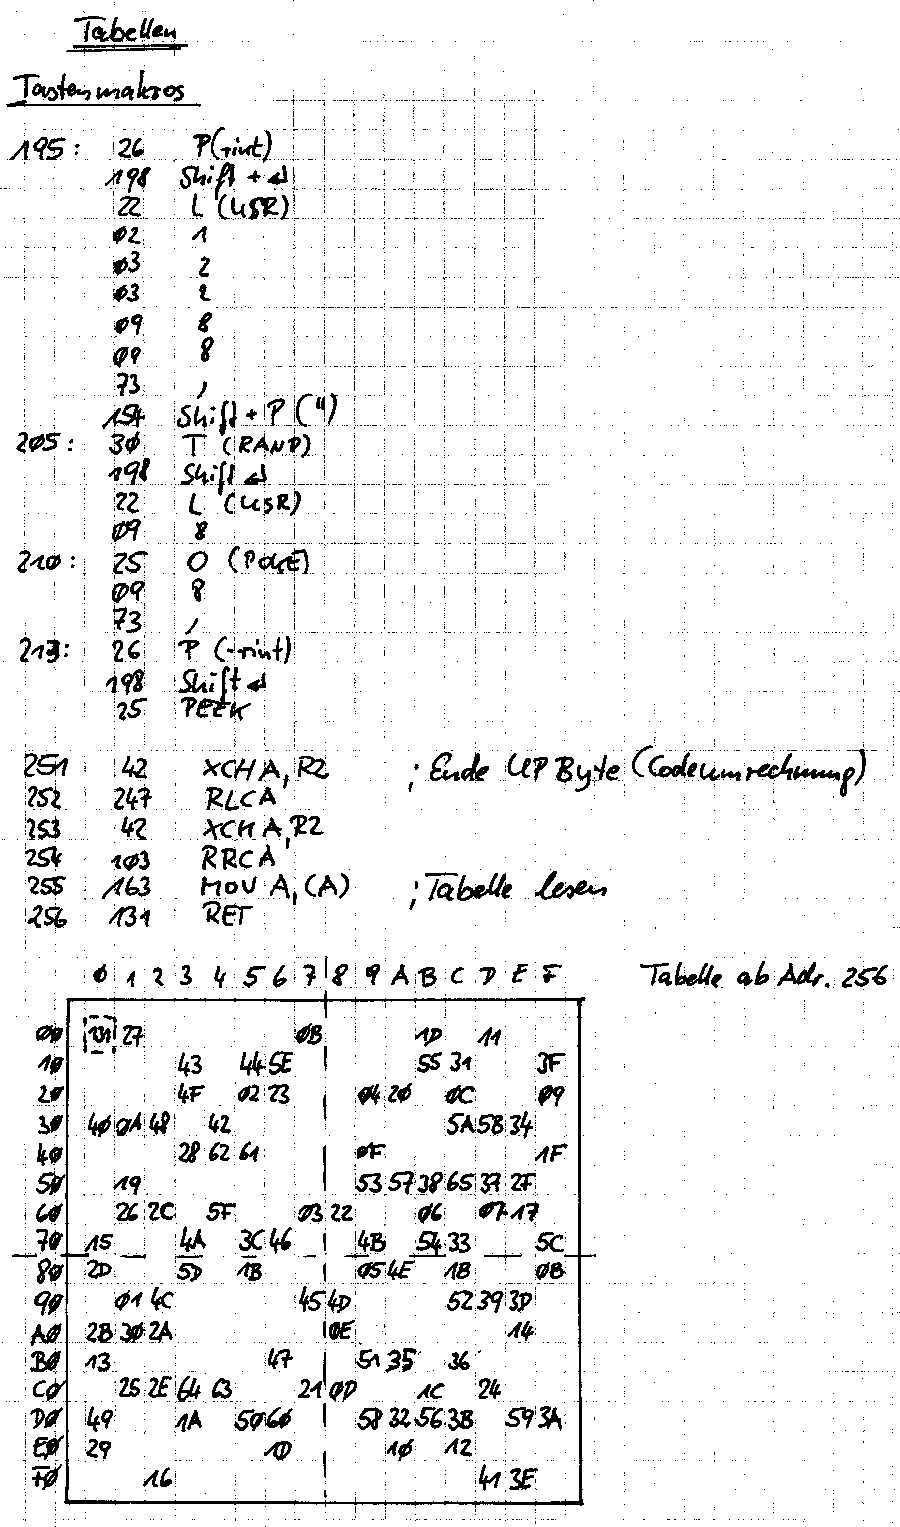 Tabellen
Tastenmakros
195: 26 P(rint)
198 Shift + ↵
22 L (USR)
02 1
03 2
03 2
09 8
09 8
73 ,
154 Shift + P (")
205: 30 T (RAND)
198 Shift ↵
22 L (USR)
09 8
210: 25 O (POKE)
09 8
73 ,
213: 26 P (rint)
198 Shift ↵
25 PEEK
251 42 XCH A,R2 ; Ende UP Byte (Codeumrechnung)
252 247 RLCA
253 42 XCH A,R2
254 103 RRCA
255 163 MOV A,(A) ; Tabelle lesen
256 131 RET
0 1 2 3 4 5 6 7 8 9 A B C D E F Tabelle ab Adr. 256
00 131 27 0B 1D 11
10 43 44 5E 55 31 3F
20 4F 02 23 04 20 0C 09
30 40 0A 48 42 5A 5B 34
40 28 62 61 0F 1F
50 19 53 57 38 65 37 2F
60 26 2C 5F 03 22 06 07 17
70 15 4A 3C 46 4B 54 33 5C
80 2D 5D 1B 05 4E 1B 0B
90 01 4C 45 4D 52 39 3D
A0 2B 30 2A 0E 14
B0 13 47 51 35 36
C0 25 2E 64 63 21 0D 1C 24
D0 49 1A 50 60 58 32 56 3B 59 3A
E0 29 1D 10 12
F0 16 41 3E